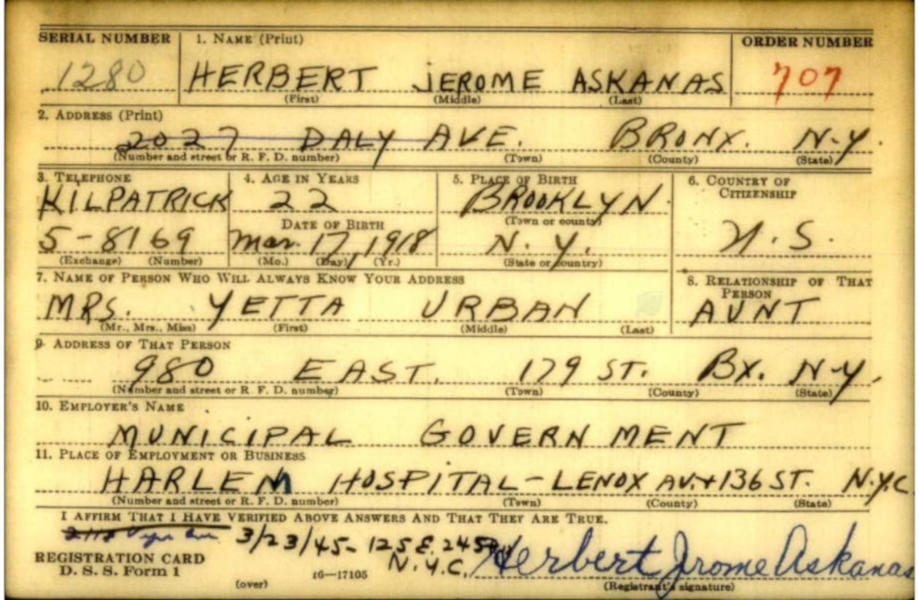 SERIAL NUMBER 1. NAME (Print) ORDER NUMBER
1280 HERBERT JEROME ASKANAS 707
(First) (Middle) (Last)
2. ADDRESS (Print)
2027 DALY AVE. BRONX. N.Y.
(Number and street or R. F. D. number) (Town) (County) (State)
3. TELEPHONE 4. AGE IN YEARS 5. PLACE OF BIRTH 6. COUNTRY OF CITIZENSHIP
KILPATRICK 22 BROOKLYN
DATE OF BIRTH (Town or county)
5-8169 Mar. 17, 1918 N.Y. U.S.
(Exchange) (Number) (Mo.) (Day) (Yr.) (State or country)
7. NAME OF PERSON WHO WILL ALWAYS KNOW YOUR ADDRESS 8. RELATIONSHIP OF THAT PERSON
MRS. YETTA URBAN AUNT
(Mr., Mrs., Miss) (First) (Middle) (Last)
9. ADDRESS OF THAT PERSON
980 EAST. 179 ST. BX. N-Y.
(Number and street or R. F. D. number) (Town) (County) (State)
10. EMPLOYER'S NAME
MUNICIPAL GOVERNMENT
11. PLACE OF EMPLOYMENT OR BUSINESS
HARLEM HOSPITAL-LENOX AV.+136 ST. N.Y.C
(Number and street or R. F. D. number) (Town) (County) (State)
I AFFIRM THAT I HAVE VERIFIED ABOVE ANSWERS AND THAT THEY ARE TRUE.
3/23/45- 125 E. 24 St
N.Y.C. Herbert Jrome Askanas
REGISTRATION CARD
D. S. S. Form 1 (over) 16-17105 (Registrant's signature)